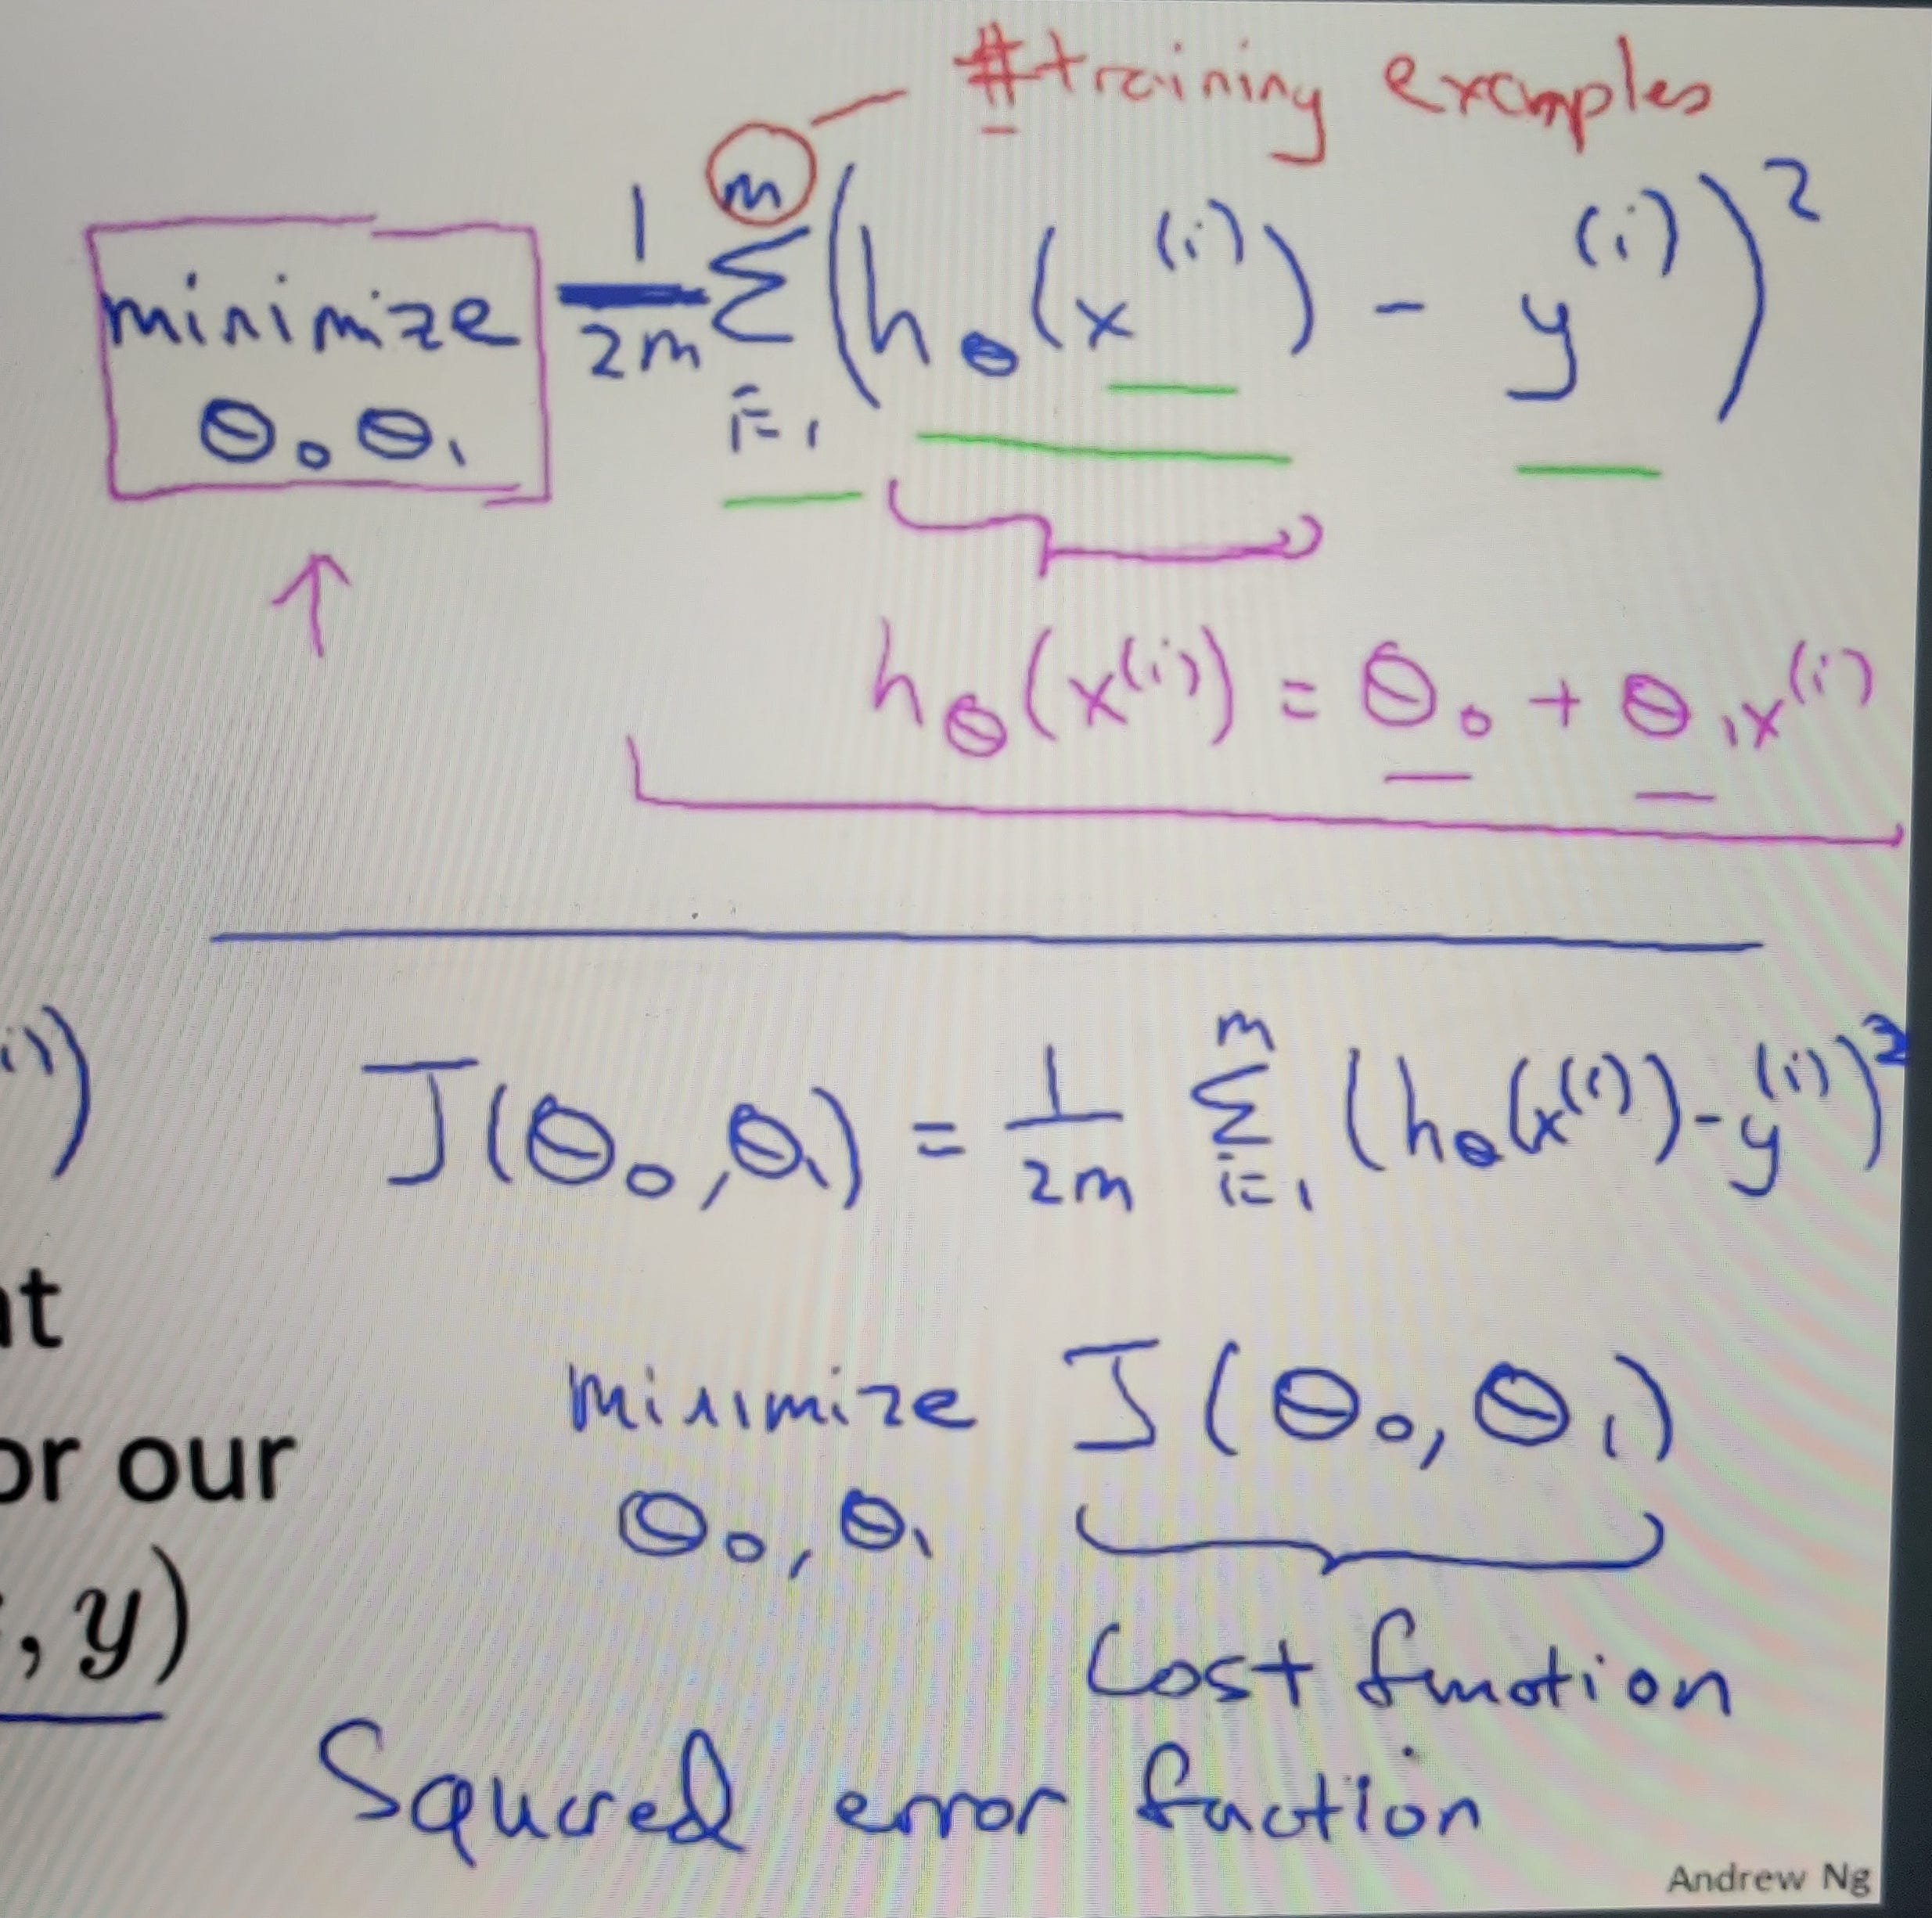 #training examples
minimize θ₀ θ₁ 1/2m Σ_{i=1}^{m} (h_θ(x^{(i)}) - y^{(i)})²
h_θ(x^{(i)}) = θ₀ + θ₁x^{(i)}
i))
J(θ₀,θ₁) = 1/2m Σ_{i=1}^{m} (h_θ(x^{(i)}) - y^{(i)})²
at
minimize θ₀,θ₁ J(θ₀,θ₁)
or our
, y)
Cost function
Squared error function
Andrew Ng